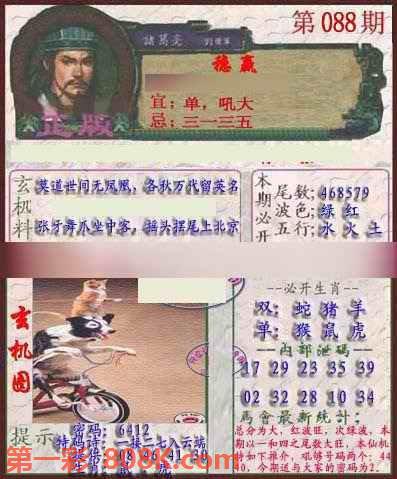 第088期
諸葛亮
稳赢
宜:单,吼大
忌:三一三五
正版
玄机料
莫道世间无凤凰,各秋万代留英名
张牙舞爪坐中客,摇头摆尾上北京
本期必开
尾数:468579
波色:绿 红
五行:水 火 土
玄机图
--必开生肖--
双: 蛇 猪 羊
单: 猴 鼠 虎
--内部泄码--
17 29 23 35 39
02 32 28 10 34
--馬會最新统计:
总分为大,红波旺,次绿波,本
期以一和四之尾数大旺,本仙机
40,今期道与大家的密码为2.
提示
密码: 6412
特码诗: 一接二七入云端
08 46 41 30
第一彩:808K.com